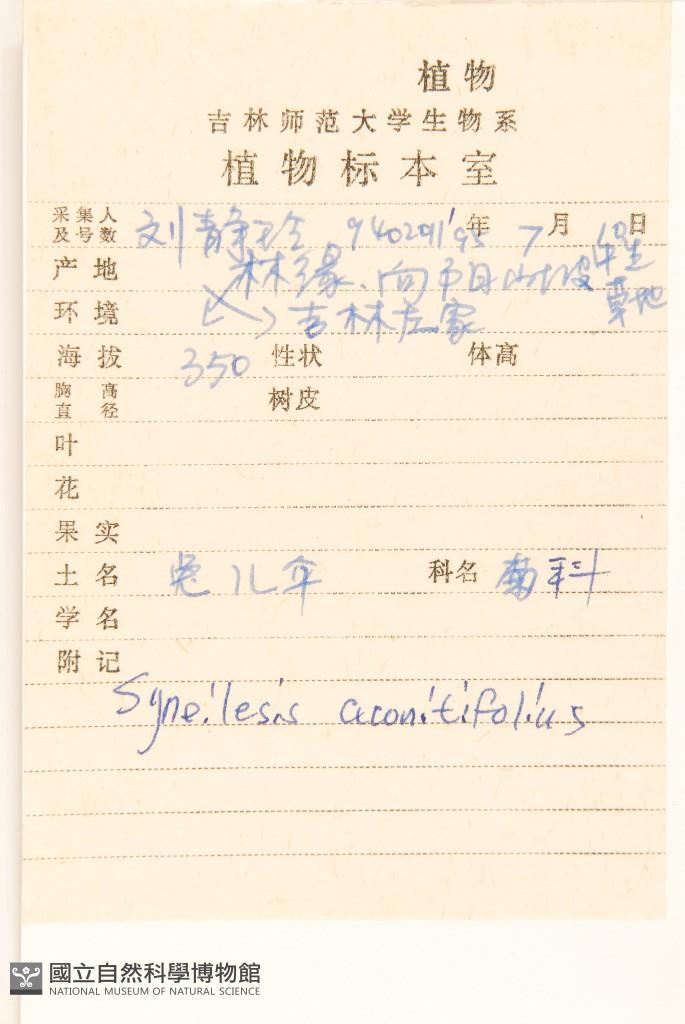 植物
吉林师范大学生物系
植物标本室
采集人及号数 刘静玲 9402011'95年 7月 10日
产地 林缘、向阳山坡 半生
环境 吉林左家 草地
海拔 350 性状 体高
胸高直径 树皮
叶
花
果实
土名 兔儿伞 科名 菊科
学名
附记
Syneilesis aconitifolius
國立自然科學博物館
NATIONAL MUSEUM OF NATURAL SCIENCE